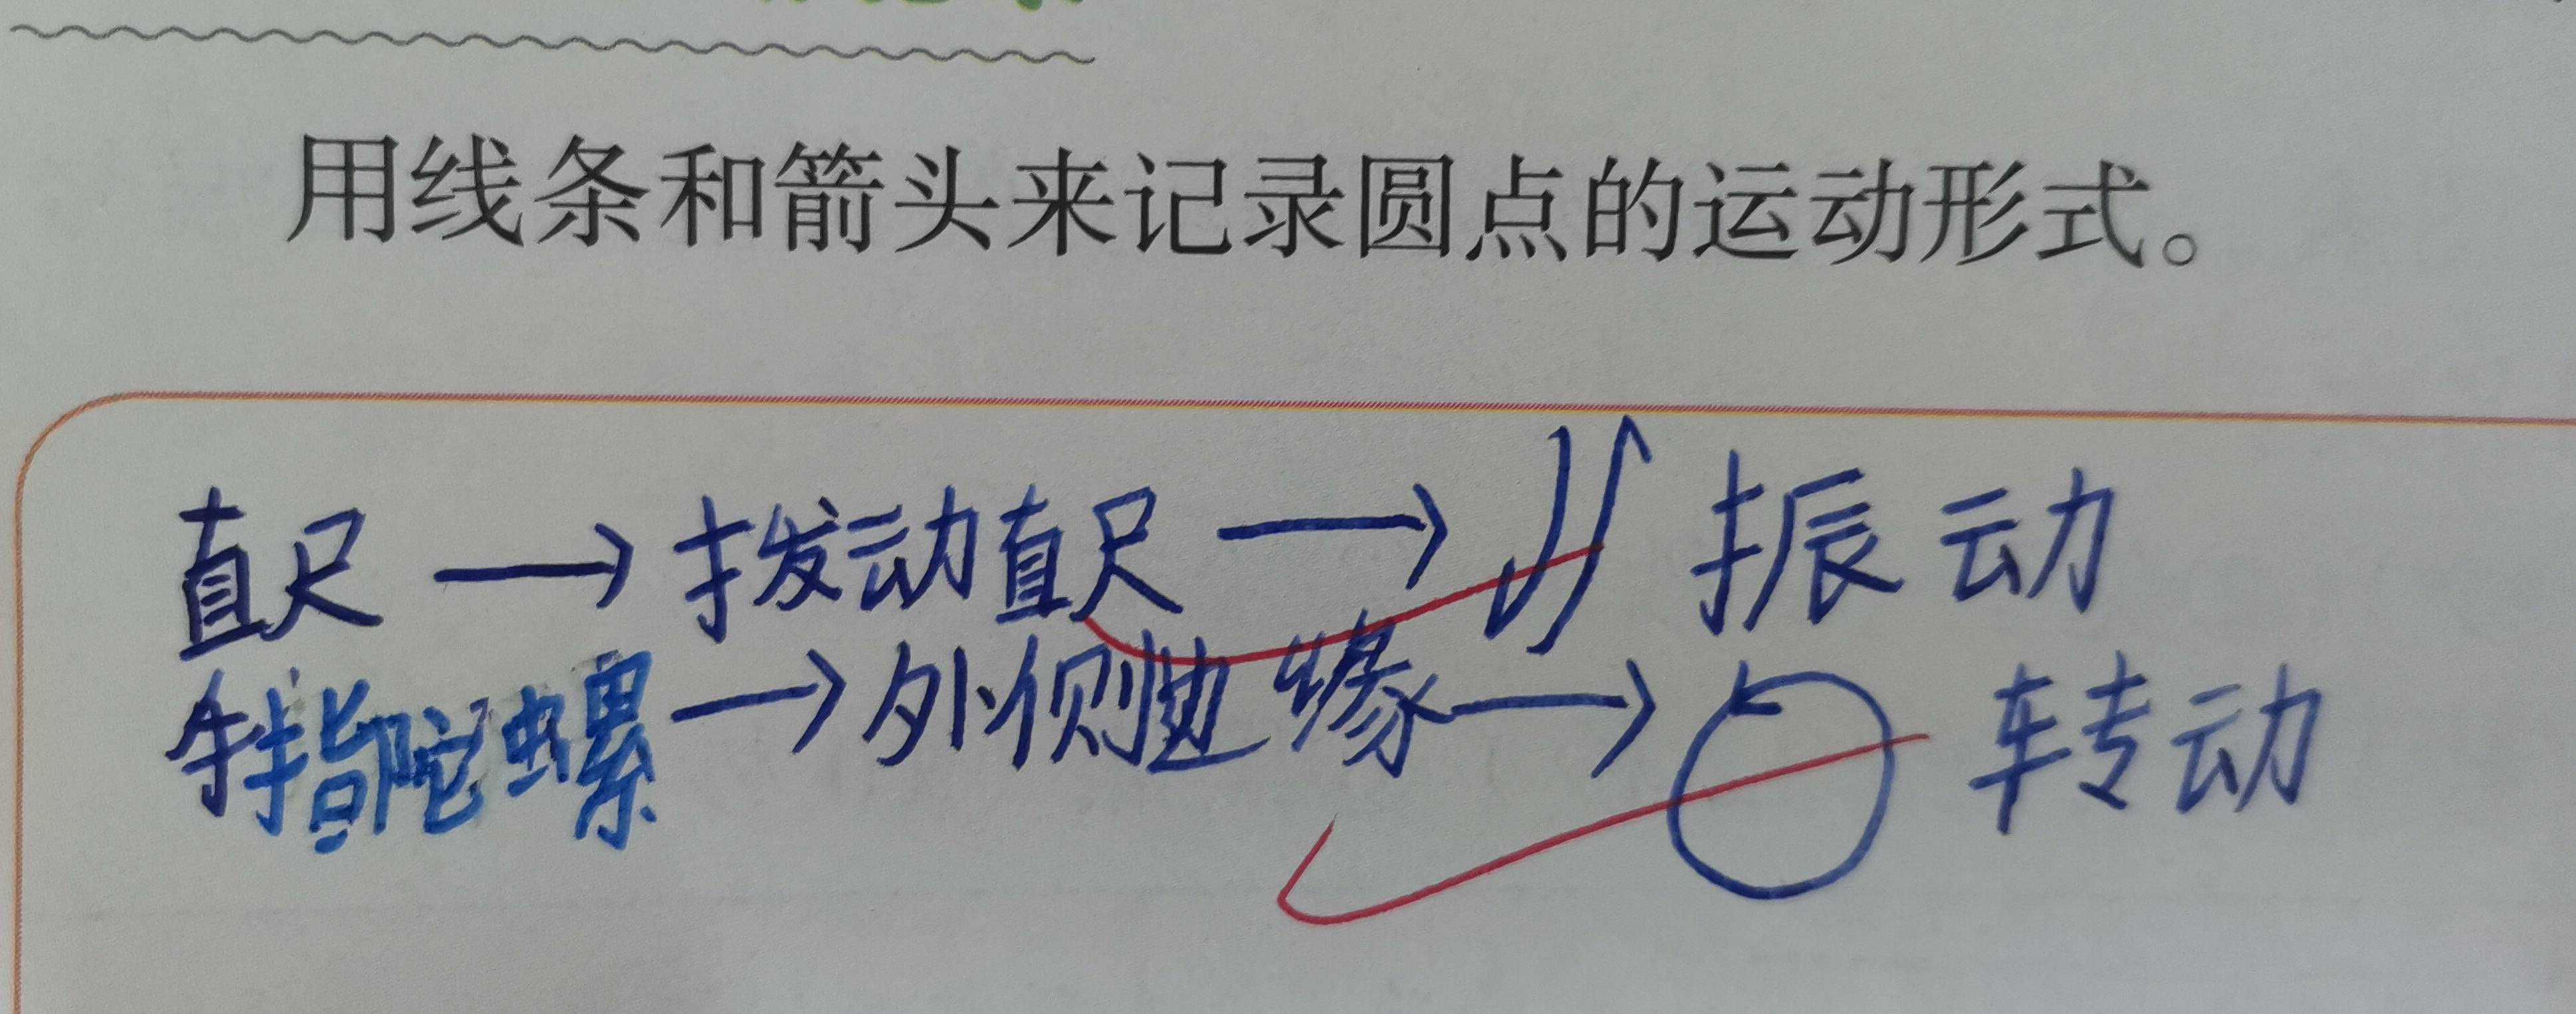 用线条和箭头来记录圆点的运动形式。
直尺 → 拨动直尺 → 振动
手指陀螺 → 外侧边缘 → 转动